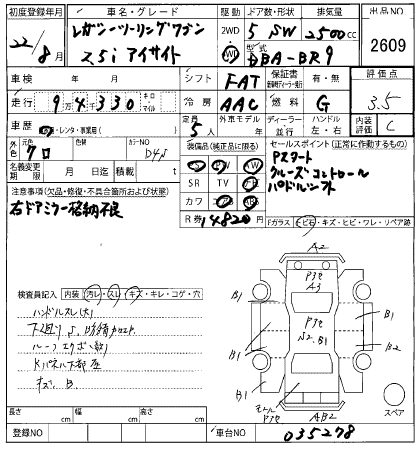 初度登録年月 車名・グレード 駆動 ドア数・形状 排気量 出品NO
22/8月 レガシーツーリングワゴン 2WD 5 SW 2500cc 2609
2.5i アイサイト 4WD 型式 DBA-BR9
車検 年 月 シフト FAT 保証書 有・無 評価点
走行 9万4330 キロ マイル 冷房 AAC 燃料 G 3.5
車歴 自・レンタ・事業用( ) 定員 5人 外車モデル 年 ディーラー 並行 ハンドル 左・右 内装 C
外色 元色 クロ 色替 カラーNO D4S 装備品(純正品に限る) セールスポイント(正常に作動するもの)
名義変更 月 日迄 積載 t SR TV Pスタート
注意事項(欠品・修復・不具合箇所および状態) クルーズコントロール
右ドアミラー格納不良 カワ パドルシフト
R券 14820円 Fガラス ヒビ石・キズ・ヒビ・ワレ・リペア跡
A2
検査員記入 内装 汚レ・スレ・キズ・キレ・コゲ・穴 Pキセ A3
ハンドルスレ(大) B1 B1
下廻りS.防錆加工 Pキセ
ルーフエクボ(数) S2.B1 B1 B2
Kパネル下部
キズ.B B1 B1
長さ cm 幅 cm 高さ cm AB2 スペア
登録NO 車台NO 035278